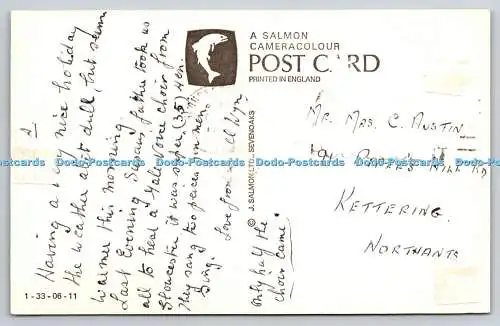 A SALMON
CAMERACOLOUR
POST CARD
PRINTED IN ENGLAND
Having a very nice holiday
the weather a bit dull, but seems
warmer this morning.
Last Evening Sammy, father took us
all to hear a Male Voice choir from
Gloucester it was super (35) Men
They sang two pieces in men.
Sing.
Love from all
only half the
choir came.
© J. SALMON SEVENOAKS
Mr. Mrs. C. Austin
Hill Rd
Kettering.
Northants
1-33-06-11
Dodo-Postcards Dodo-Postcards Dodo-Postcards Dodo-Postcards Dodo-Postcards